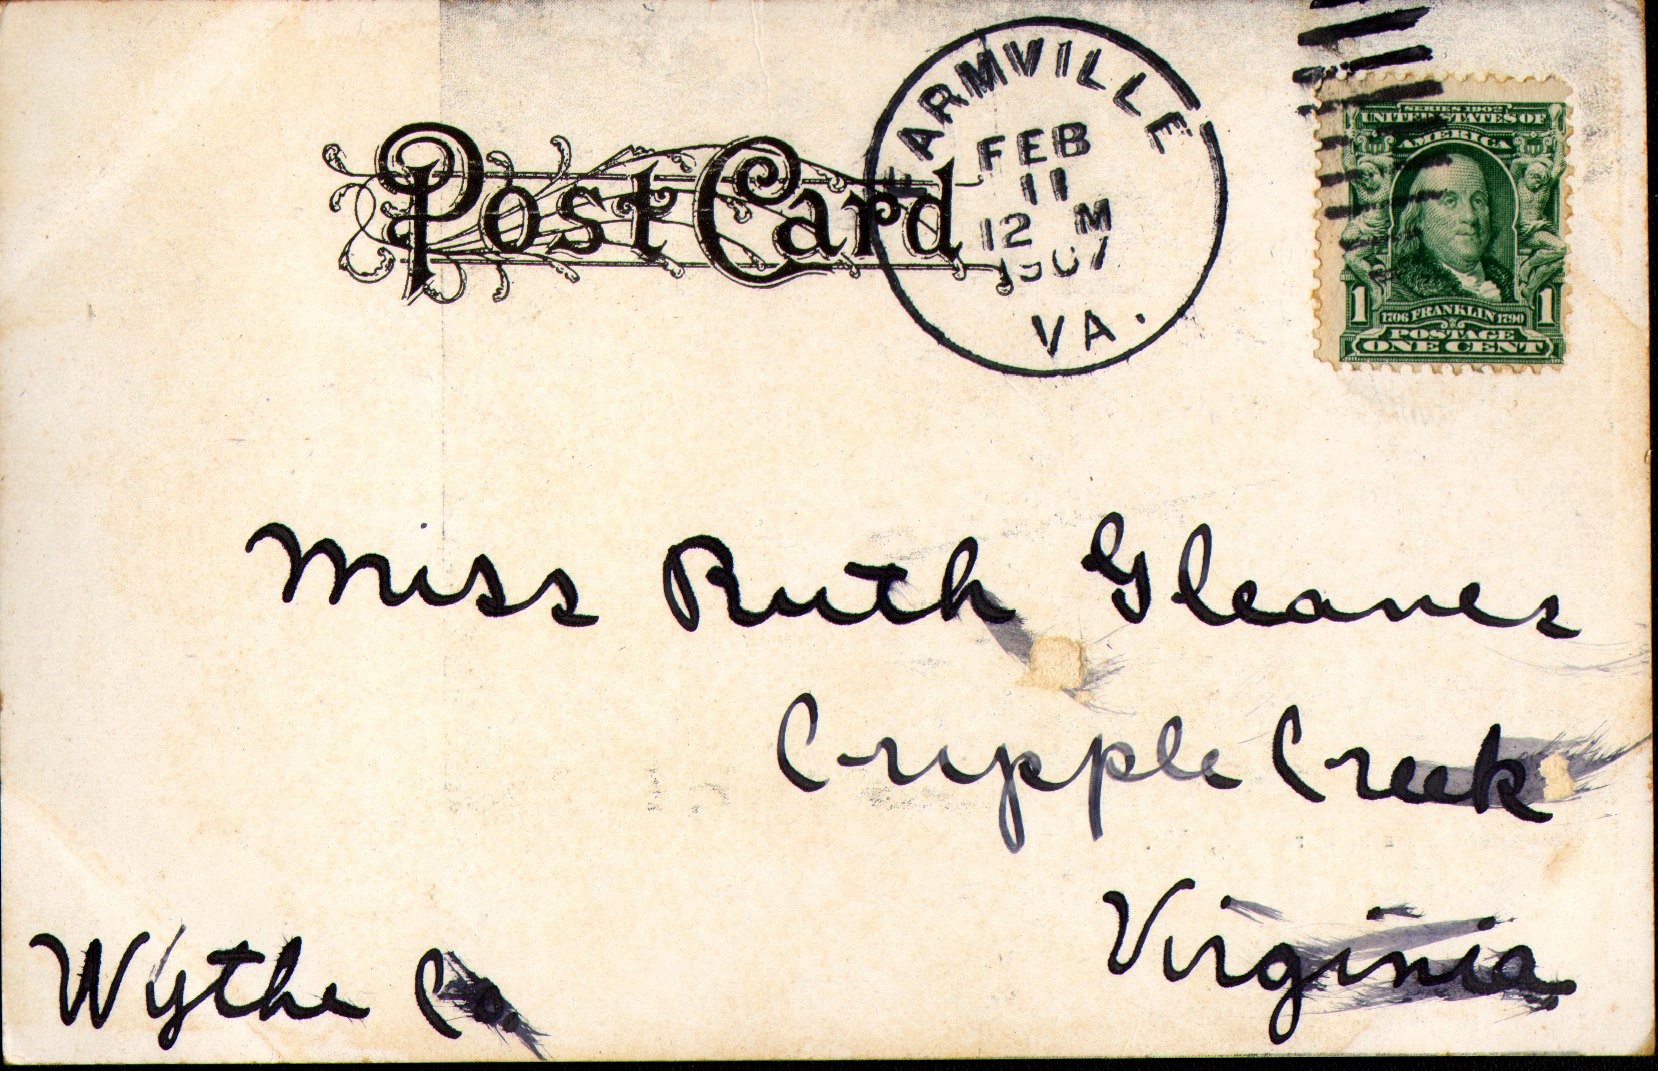 Post Card
FARMVILLE
FEB
11
12 M
1907
VA.
SERIES 1902
UNITED STATES OF
AMERICA
1 1706 FRANKLIN 1790 1
POSTAGE
ONE CENT
Miss Ruth Gleaves
Cripple Creek
Virginia
Wythe Co.